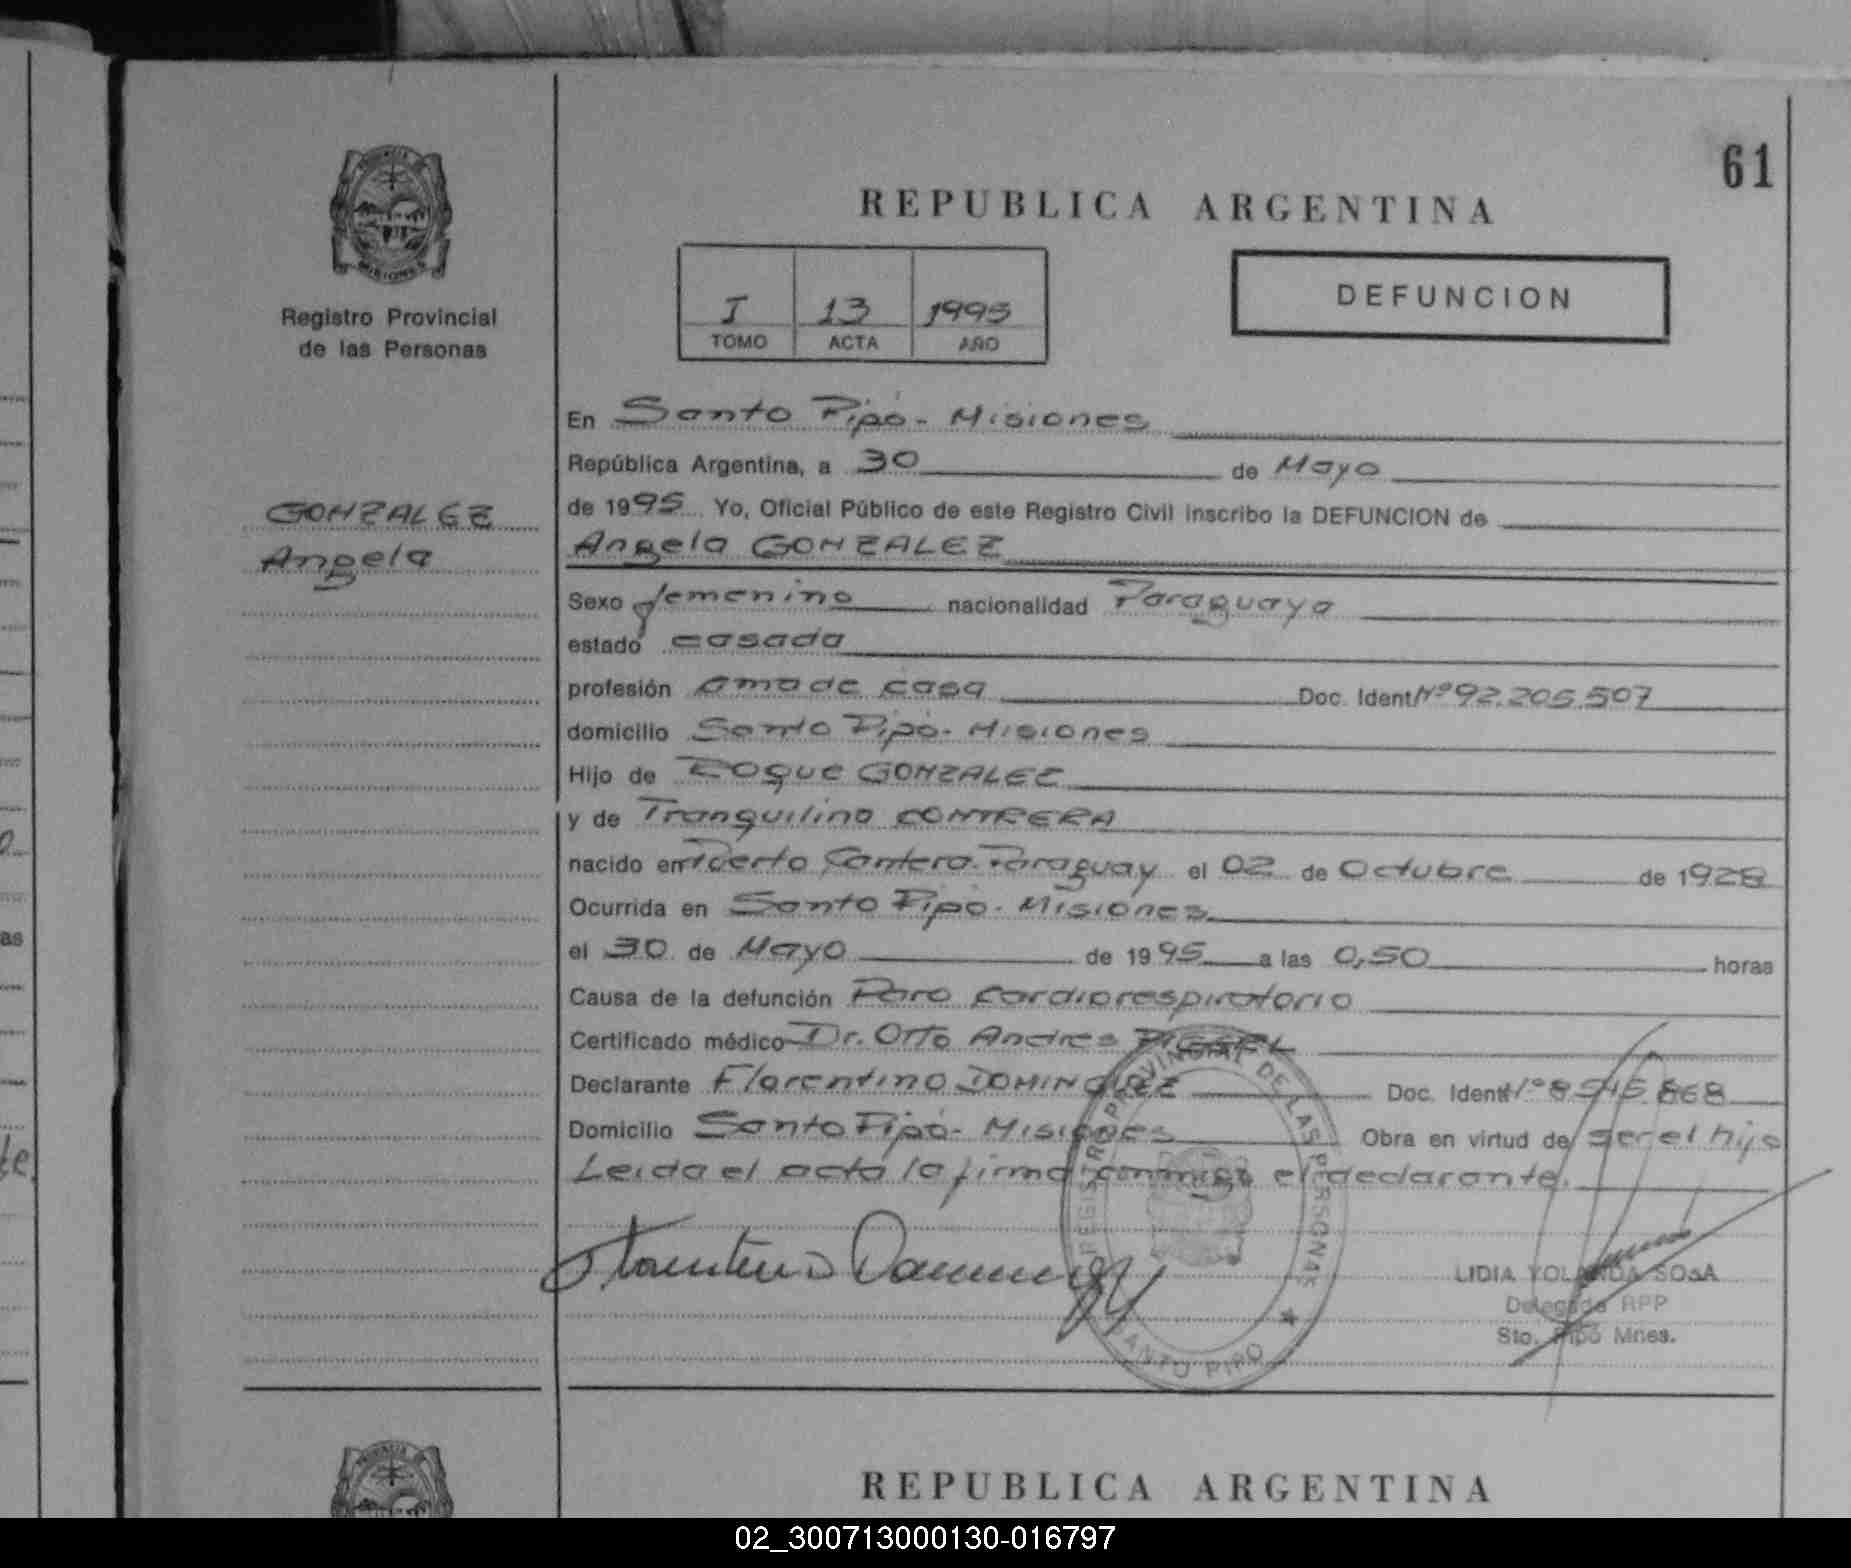 61
PROVINCIA
MISIONES
Registro Provincial
de las Personas
REPUBLICA ARGENTINA
I 13 1995
TOMO ACTA AÑO
DEFUNCION
GONZALEZ
Angela
En Santo Pipó - Misiones
República Argentina, a 30 de Mayo
de 1995. Yo, Oficial Público de este Registro Civil inscribo la DEFUNCION de
Angela GONZALEZ
Sexo femenino nacionalidad Paraguaya
estado casada
profesión ama de casa Doc. Ident. Nº 92.205.507
domicilio Santo Pipó - Misiones
Hijo de Roque GONZALEZ
y de Tranquilina CONTRERA
nacido en Puerto Cantera - Paraguay el 02 de Octubre de 1928
Ocurrida en Santo Pipó - Misiones
el 30 de Mayo de 1995 a las 0,50 horas
Causa de la defunción Paro Cardiorespiratorio
Certificado médico Dr. Otto Andres
Declarante Florentino DOMINGUEZ Doc. Ident. Nº 8.545.868
Domicilio Santo Pipó - Misiones Obra en virtud de ser el hijo
Leida el acta la firma conmigo el declarante.
REGISTRO PROVINCIAL DE LAS PERSONAS
SANTO PIPO
LIDIA YOLANDA SOSA
Delegada RPP
Sto. Pipó Mnes.
REPUBLICA ARGENTINA
02_300713000130-016797